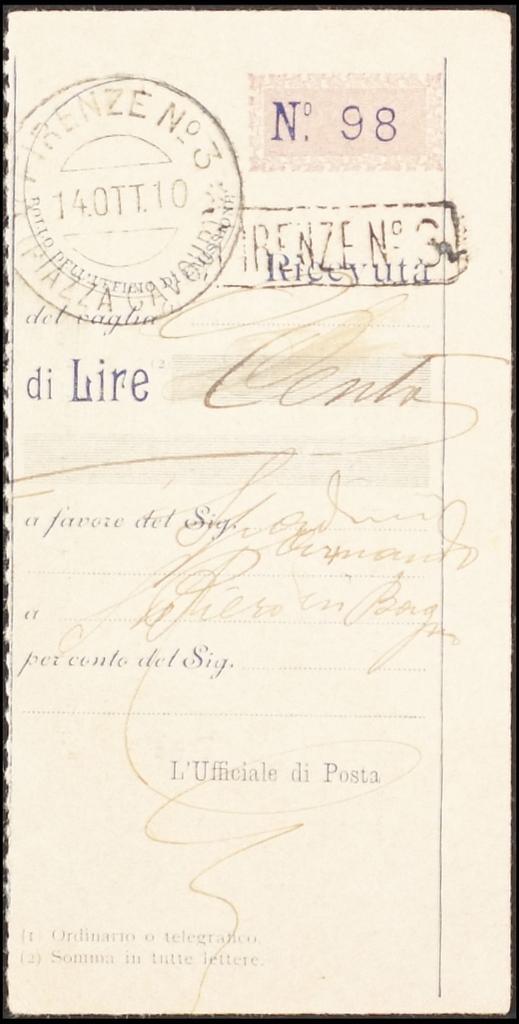 Nº. 98
FIRENZE Nº 3
14.OTT.10
BOLLO DELL'UFFICIO DI EMISSIONE
(PIAZZA CAVOUR)
FIRENZE Nº 3
Ricevuta
del vaglia
di Lire (2) Cento
a favore del Sig.
Armando
a S. Piero in Bagno
per conto del Sig.
L'Ufficiale di Posta
(1) Ordinario o telegrafico.
(2) Somma in tutte lettere.